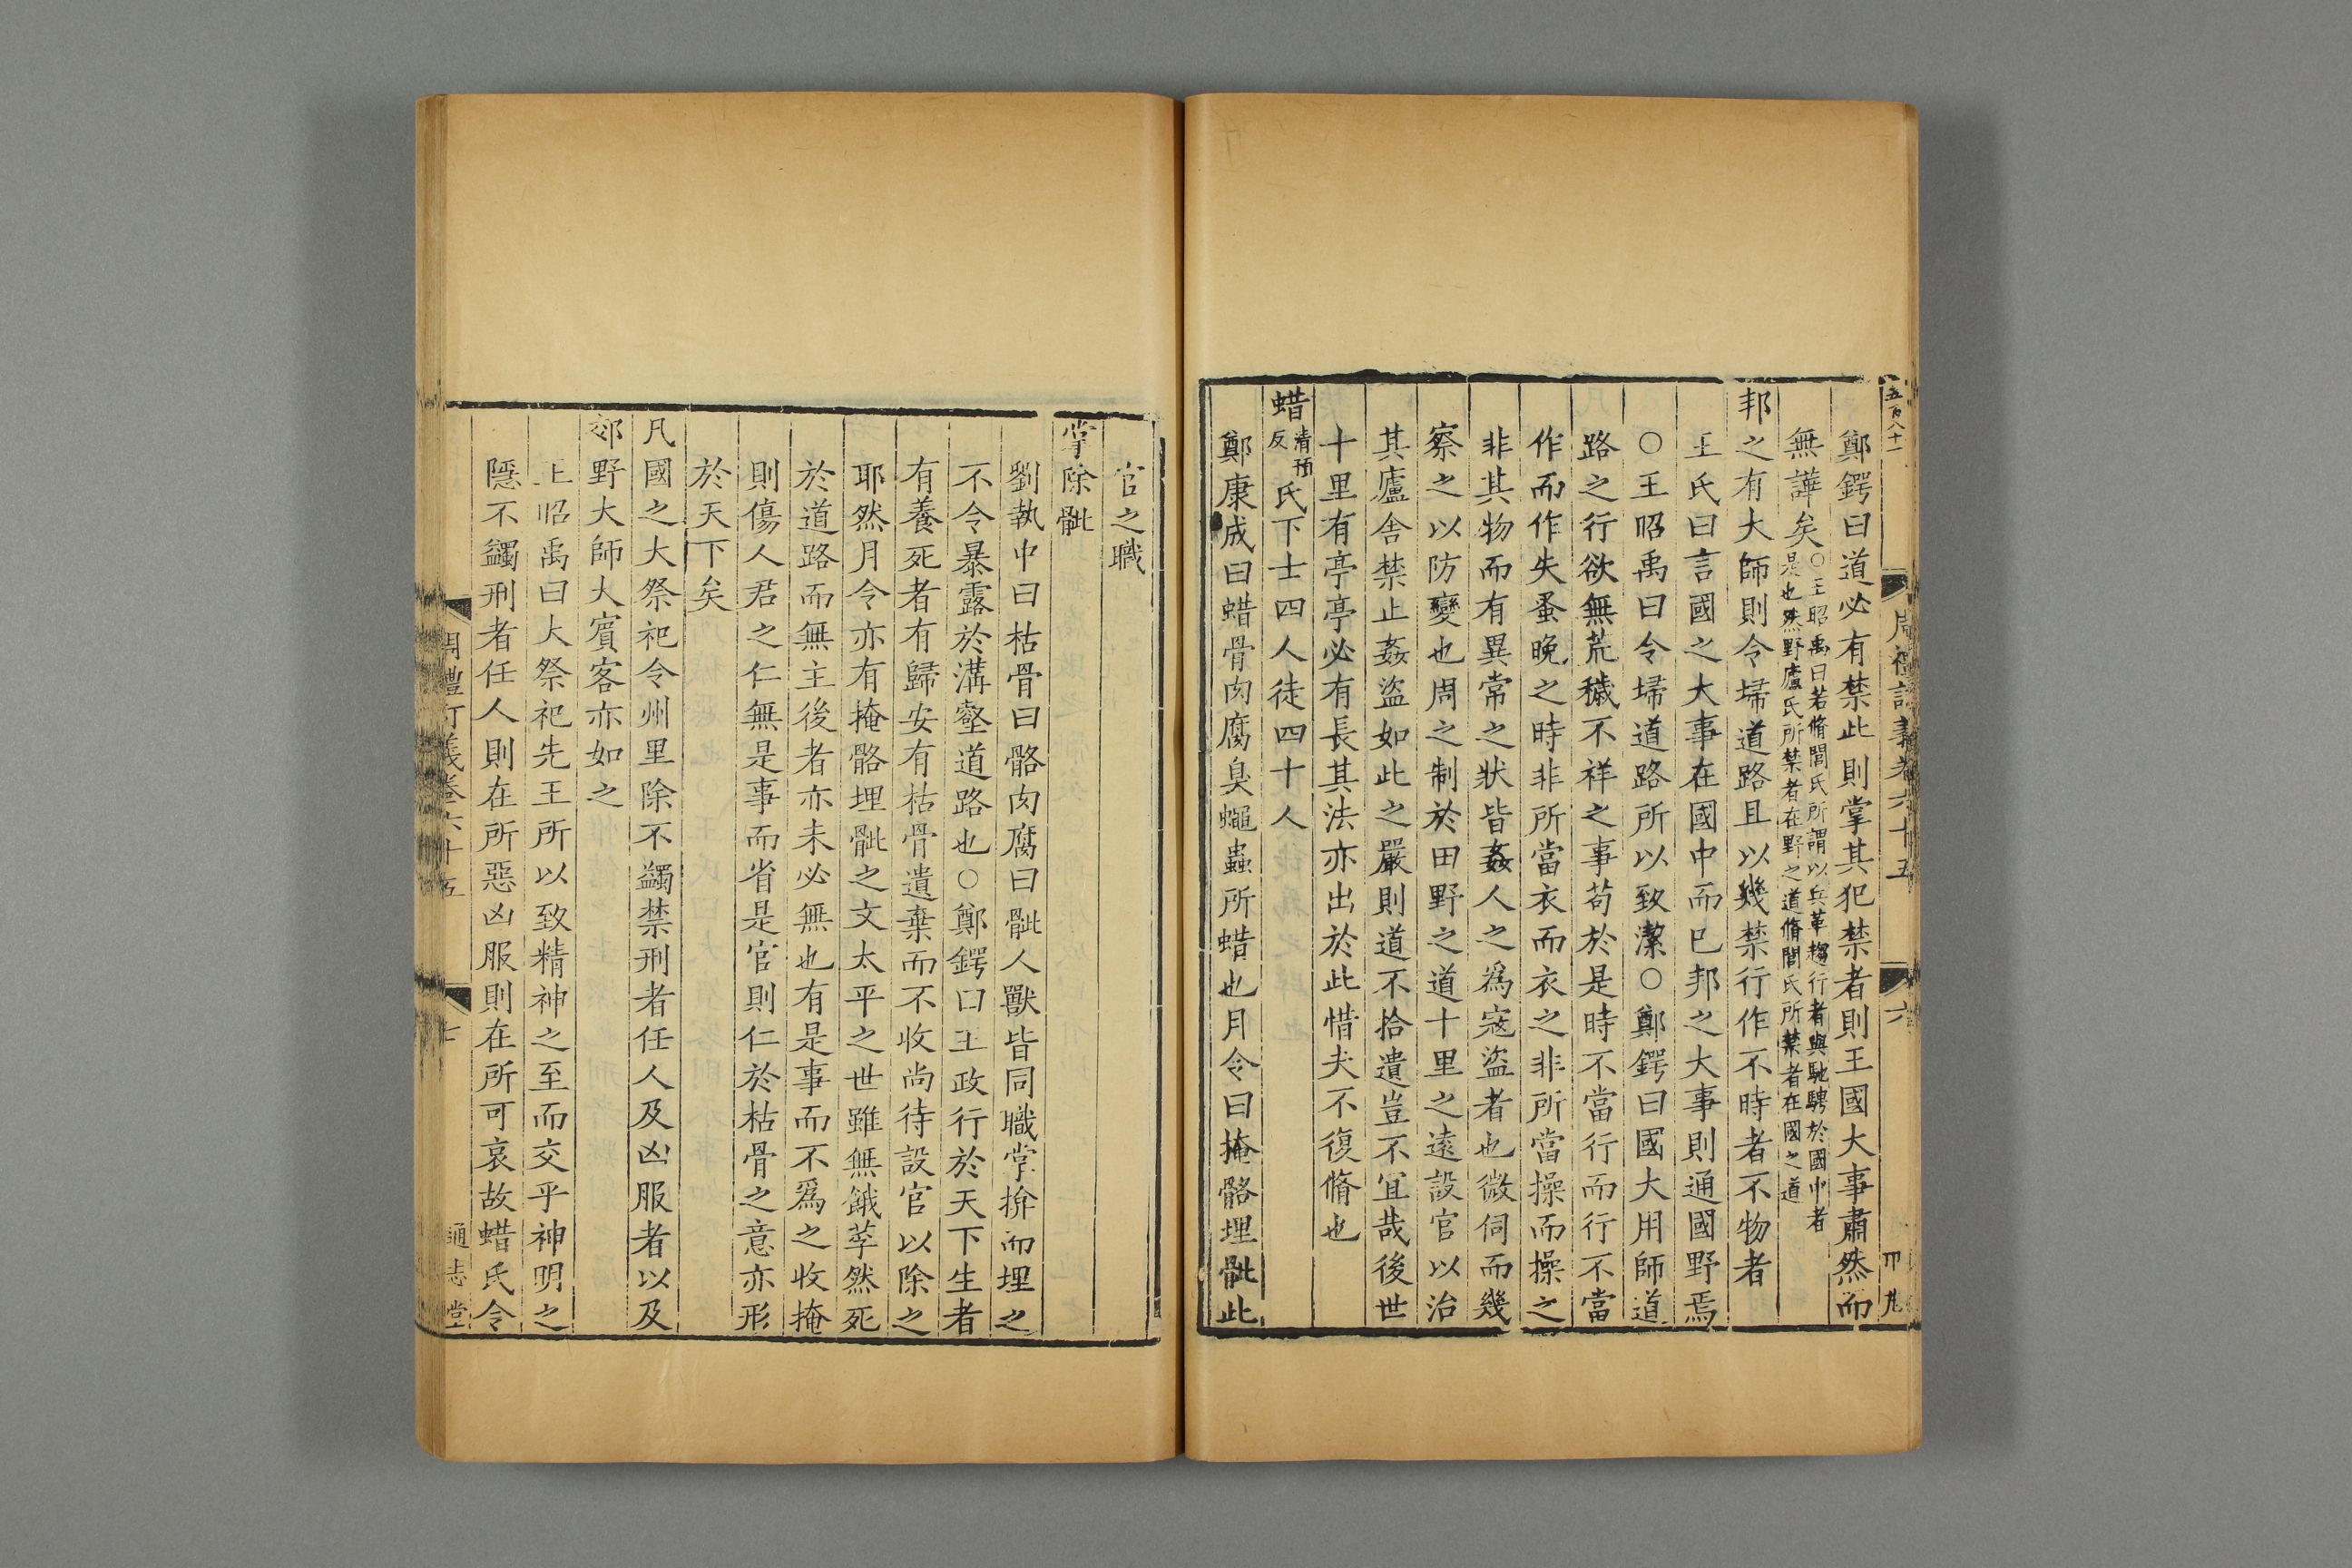 五百八十一
周禮訂義卷六十五
六
鄭鍔曰道必有禁此則掌其犯禁者則王國大事肅然而
無譁矣○王昭禹曰若脩閭氏所謂以兵革趨行者與馳騁於國中者是也然野廬氏所禁者在野之道脩閭氏所禁者在國之道
邦之有大師則令埽道路且以幾禁行作不時者不物者
王氏曰言國之大事在國中而已邦之大事則通國野焉
○王昭禹曰令埽道路所以致潔○鄭鍔曰國大用師道
路之行欲無荒穢不祥之事苟於是時不當行而行不當
作而作失蚤晚之時非所當衣而衣之非所當操而操之
非其物而有異常之狀皆姦人之爲寇盜者也微伺而幾
察之以防變也周之制於田野之道十里之遠設官以治
其廬舍禁止姦盜如此之嚴則道不拾遺豈不宜哉後世
十里有亭亭必有長其法亦出於此惜夫不復脩也
蜡清預反氏下士四人徒四十人
鄭康成曰蜡骨肉腐臭蠅蟲所蜡也月令曰掩骼埋骴此
官之職
掌除骴
劉執中曰枯骨曰骼肉腐曰骴人獸皆同職掌揜而埋之
不令暴露於溝壑道路也○鄭鍔曰王政行於天下生者
有養死者有歸安有枯骨遺棄而不收尚待設官以除之
耶然月令亦有掩骼埋骴之文太平之世雖無餓莩然死
於道路而無主後者亦未必無也有是事而不爲之收掩
則傷人君之仁無是事而省是官則仁於枯骨之意亦形
於天下矣
凡國之大祭祀令州里除不蠲禁刑者任人及凶服者以及
郊野大師大賓客亦如之
王昭禹曰大祭祀先王所以致精神之至而交乎神明之
隱不蠲刑者任人則在所惡凶服則在所可哀故蜡氏令
周禮訂義卷六十五
七
通志堂